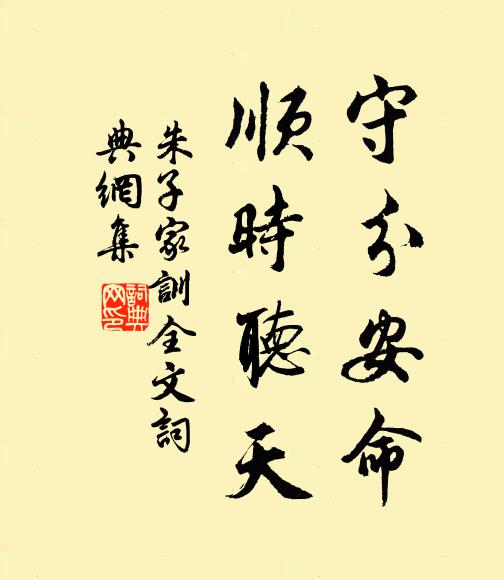 守分安命
順時聽天
朱子家訓全文詞
典網集
詞典網印